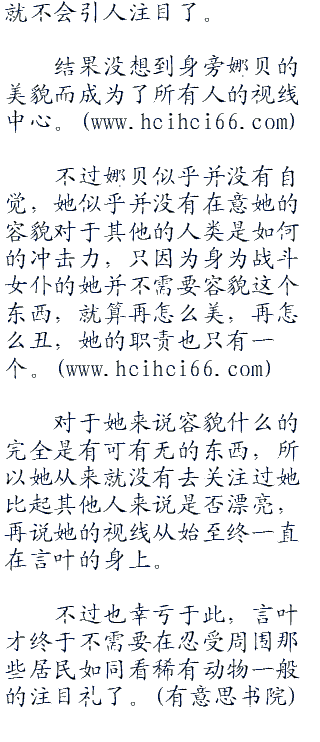 就不会引人注目了。
结果没想到身旁娜贝的
美貌而成为了所有人的视线
中心。(www.hcihci66.com)
不过娜贝似乎并没有自
觉，她似乎并没有在意她的
容貌对于其他的人类是如何
的冲击力，只因为身为战斗
女仆的她并不需要容貌这个
东西，就算再怎么美，再怎
么丑，她的职责也只有一
个。(www.hcihci66.com)
对于她来说容貌什么的
完全是有可有无的东西，所
以她从来就没有去关注过她
比起其他人来说是否漂亮，
再说她的视线从始至终一直
在言叶的身上。
不过也幸亏于此，言叶
才终于不需要在忍受周围那
些居民如同看稀有动物一般
的注目礼了。(有意思书院)